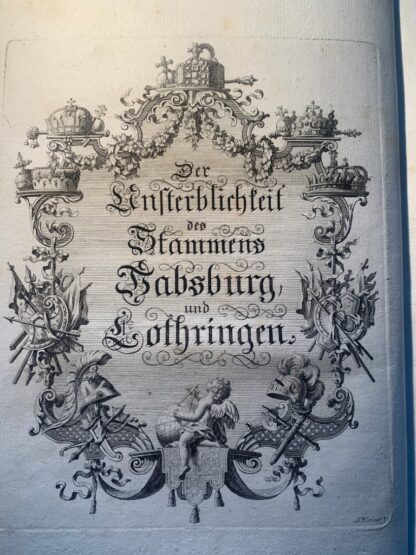 Der
Unsterblichkeit
des
Stammens
Habsburg,
und
Lothringen.